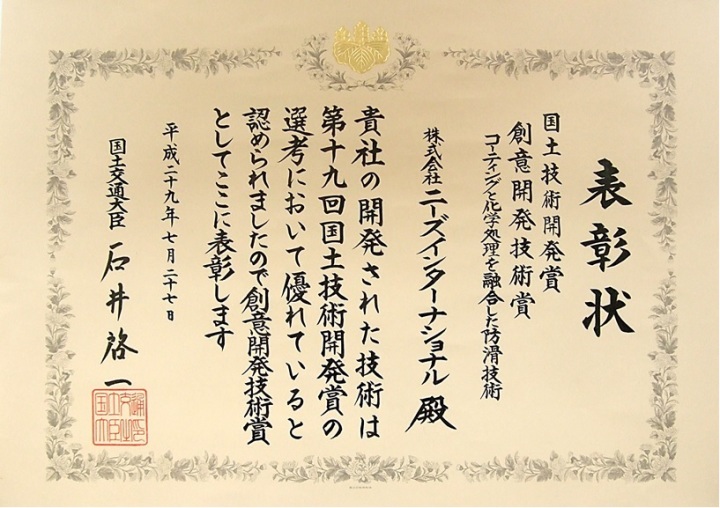 表彰状
国土技術開発賞
創意開発技術賞
コーティングと化学処理を融合した防滑技術
株式会社ニーズインターナショナル 殿
貴社の開発された技術は
第十九回国土技術開発賞の
選考において優れていると
認められましたので創意開発技術賞
としてここに表彰します
平成二十九年七月二十七日
国土交通大臣 石井啓一